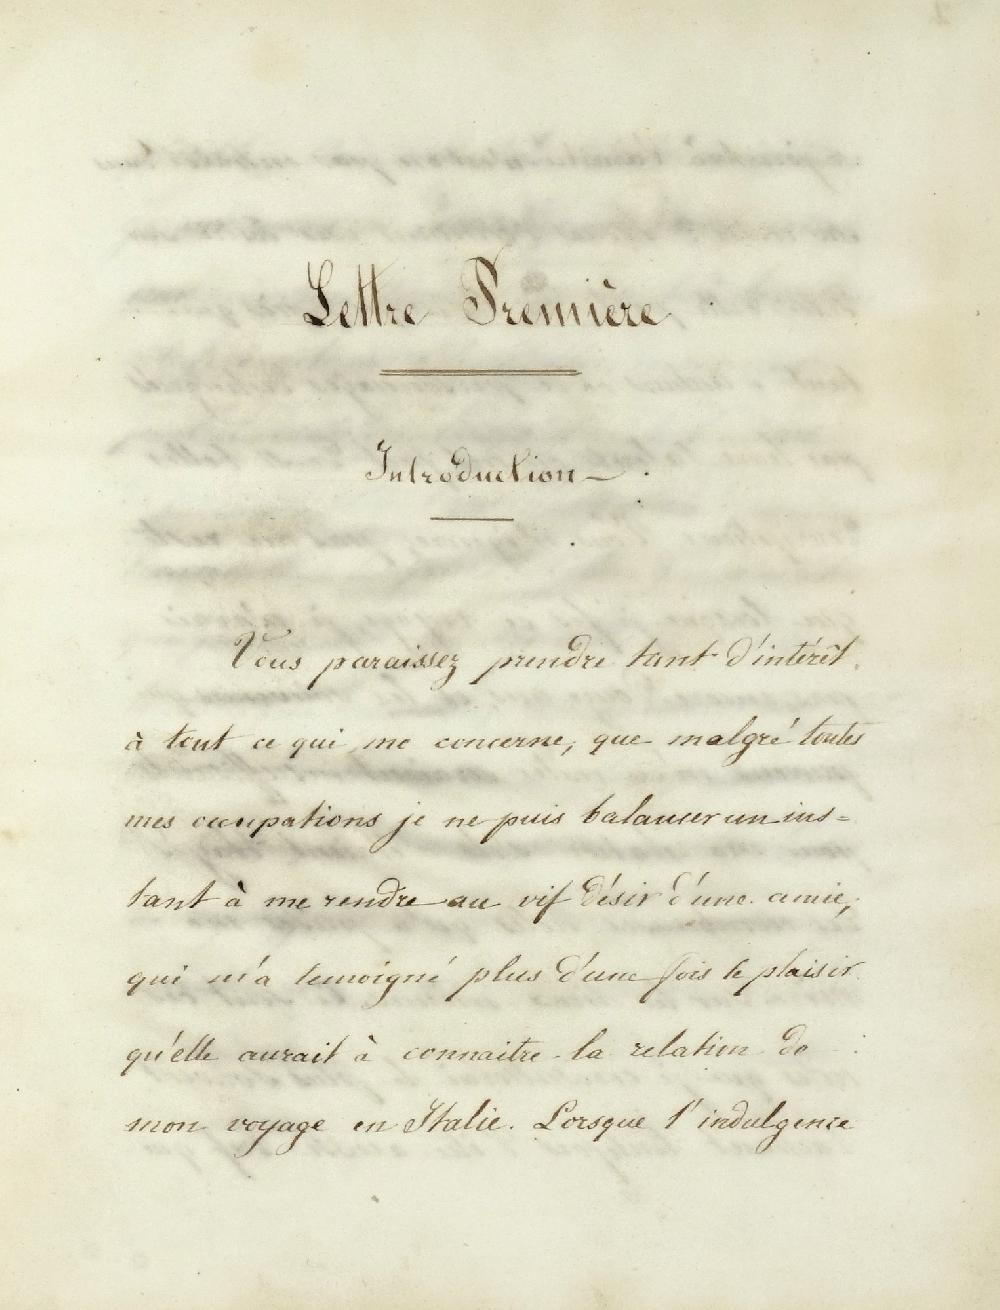 Lettre Première
Introduction
Vous paraissez prendre tant d'intérêt
à tout ce qui me concerne, que malgré toutes
mes occupations je ne puis balancer un ins=
tant à me rendre au vif désir d'une amie,
qui m'a temoigné plus d'une fois le plaisir
qu'elle aurait à connaitre la relation de
mon voyage en Italie. Lorsque l'indulgence